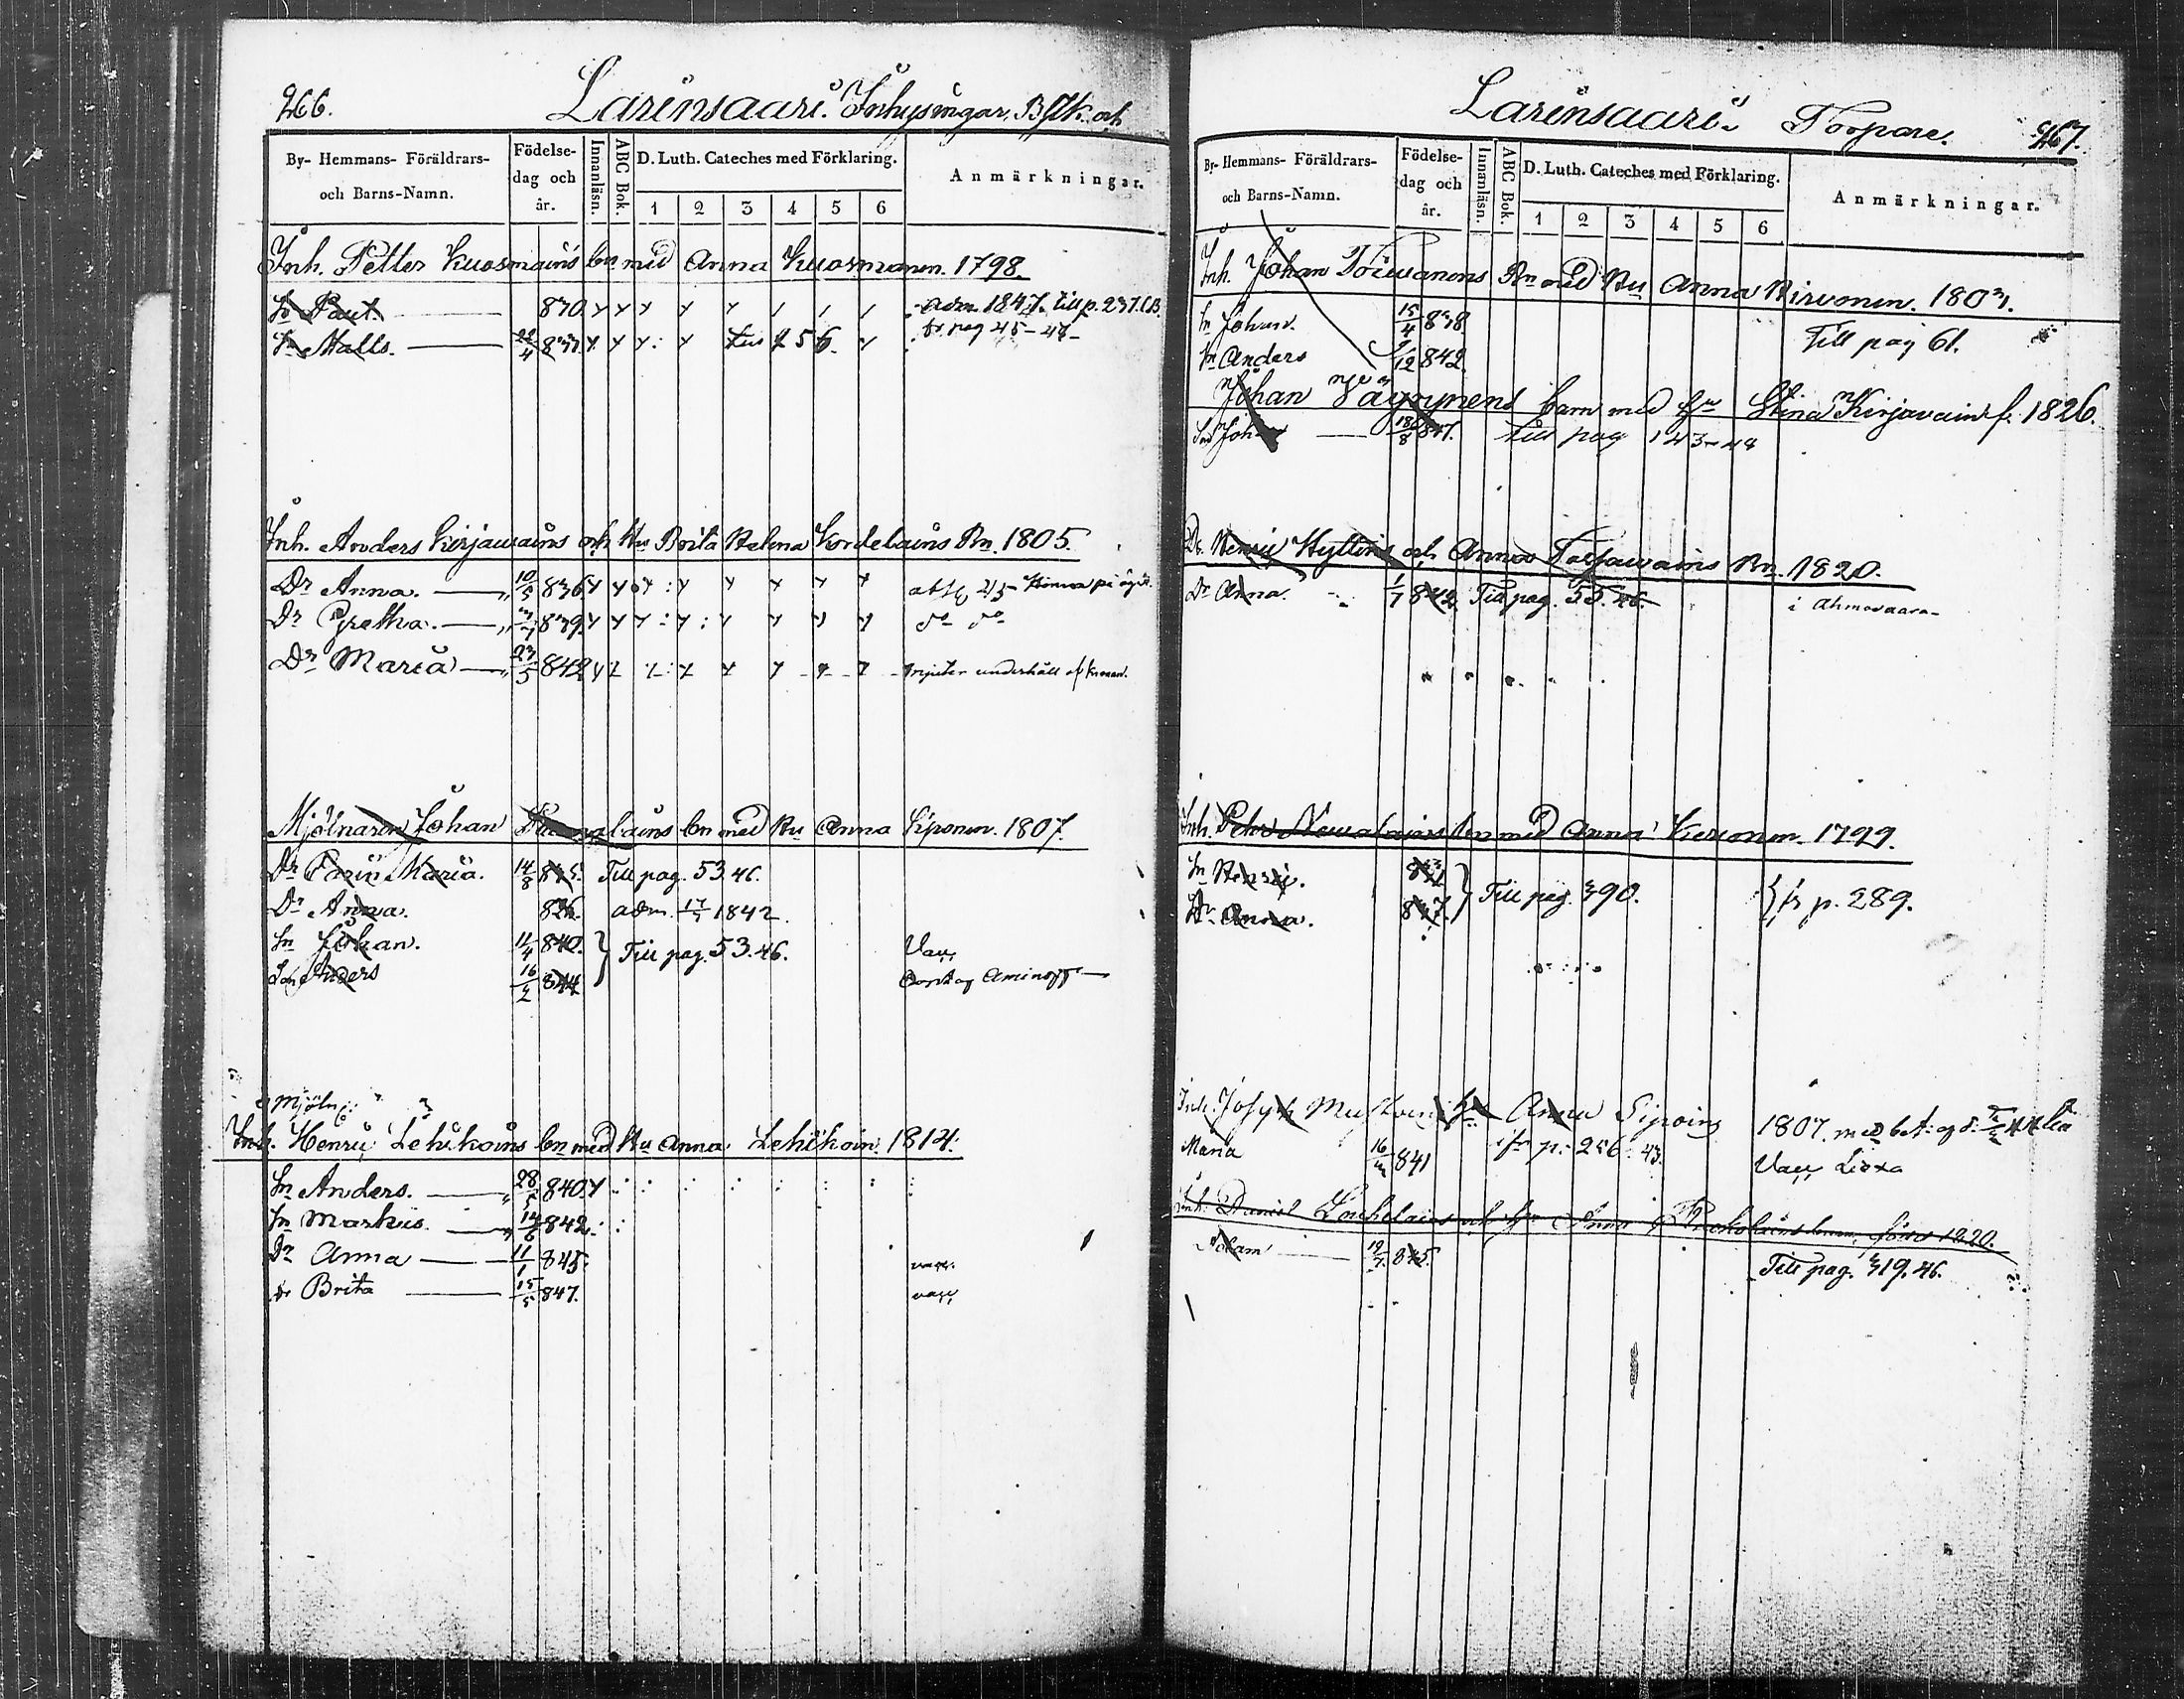 266.
Larinsaari. Inhysingar, B.
By- Hemmans- Föräldrars- och Barns-Namn.
Födelse-dag och år.
Innanläsn.
ABC Bok.
D. Luth. Cateches med Förklaring.
1 2 3 4 5 6
Anmärkningar.
Inh. Petter Kuosmains bn med Anna Kuosmanen. 1798.
Sn Paul. 830 adm. 1847. till p. 237.
Sn Matts. 22/4 837 fr. pag 45-48
Inh. Anders Kirjavains och Hu Brita Helena Kordelains Bn. 1805.
Dr Anna. 10/5 836
Dr Gretha. 839 do do
Dr Maria 23/5 842 njuter underhåll af kronan.
Mjölnaren Johan bn med Hu Anna Siponen. 1807.
Dr Carin Maria. 14/8 Till pag. 53.46.
Dr Anna. 826. adm. 17/7 1842.
Sn Johan. 11/4 840. Till pag. 53.46. Vacc.
Son Anders 16/2 844 Aminoff
Mjöln.
Inh. Henric Lehikoins bn med Hu Anna Lehikoin. 1814.
Sn Anders. 28/5 840
Sn Markus. 14/6 842
Dr Anna 11/1 845. vacc.
dr Brita 15/5 847. vacc.
Larinsaari. Torpare. 267.
By- Hemmans- Föräldrars- och Barns-Namn.
Födelse-dag och år.
Innanläsn.
ABC Bok.
D. Luth. Cateches med Förklaring.
1 2 3 4 5 6
Anmärkningar.
Inh. Johan Toiwanens Bn med Hu Anna Hirvonen. 1803.
Sn Johan. 15/4 838 Till pag 61.
Sn Anders 842.
Johan Väyrynens barn med Hu Stina Kirjavain f. 1826.
Son Johan 18/8 847. till pag 143-48
Henric Hyttins och Anna Torjavains Bn. 1820.
Dr Anna. 1/7 842 Till pag. 53.46. i Ahmovaara
Inh. Pehr Nevalains bn med Anna Kieronen. 1799.
Sn Henric. Till pag. 390. fr p. 289.
Dr Anna.
Inh. Joseph Hu Anna Sipoins 1807.
Maria 16/3 841 fr p. 256. 43. Vacc.
Inh. Daniel och Hu Anna 1820.
Adam 19/7. 845. Till pag. 319.46.